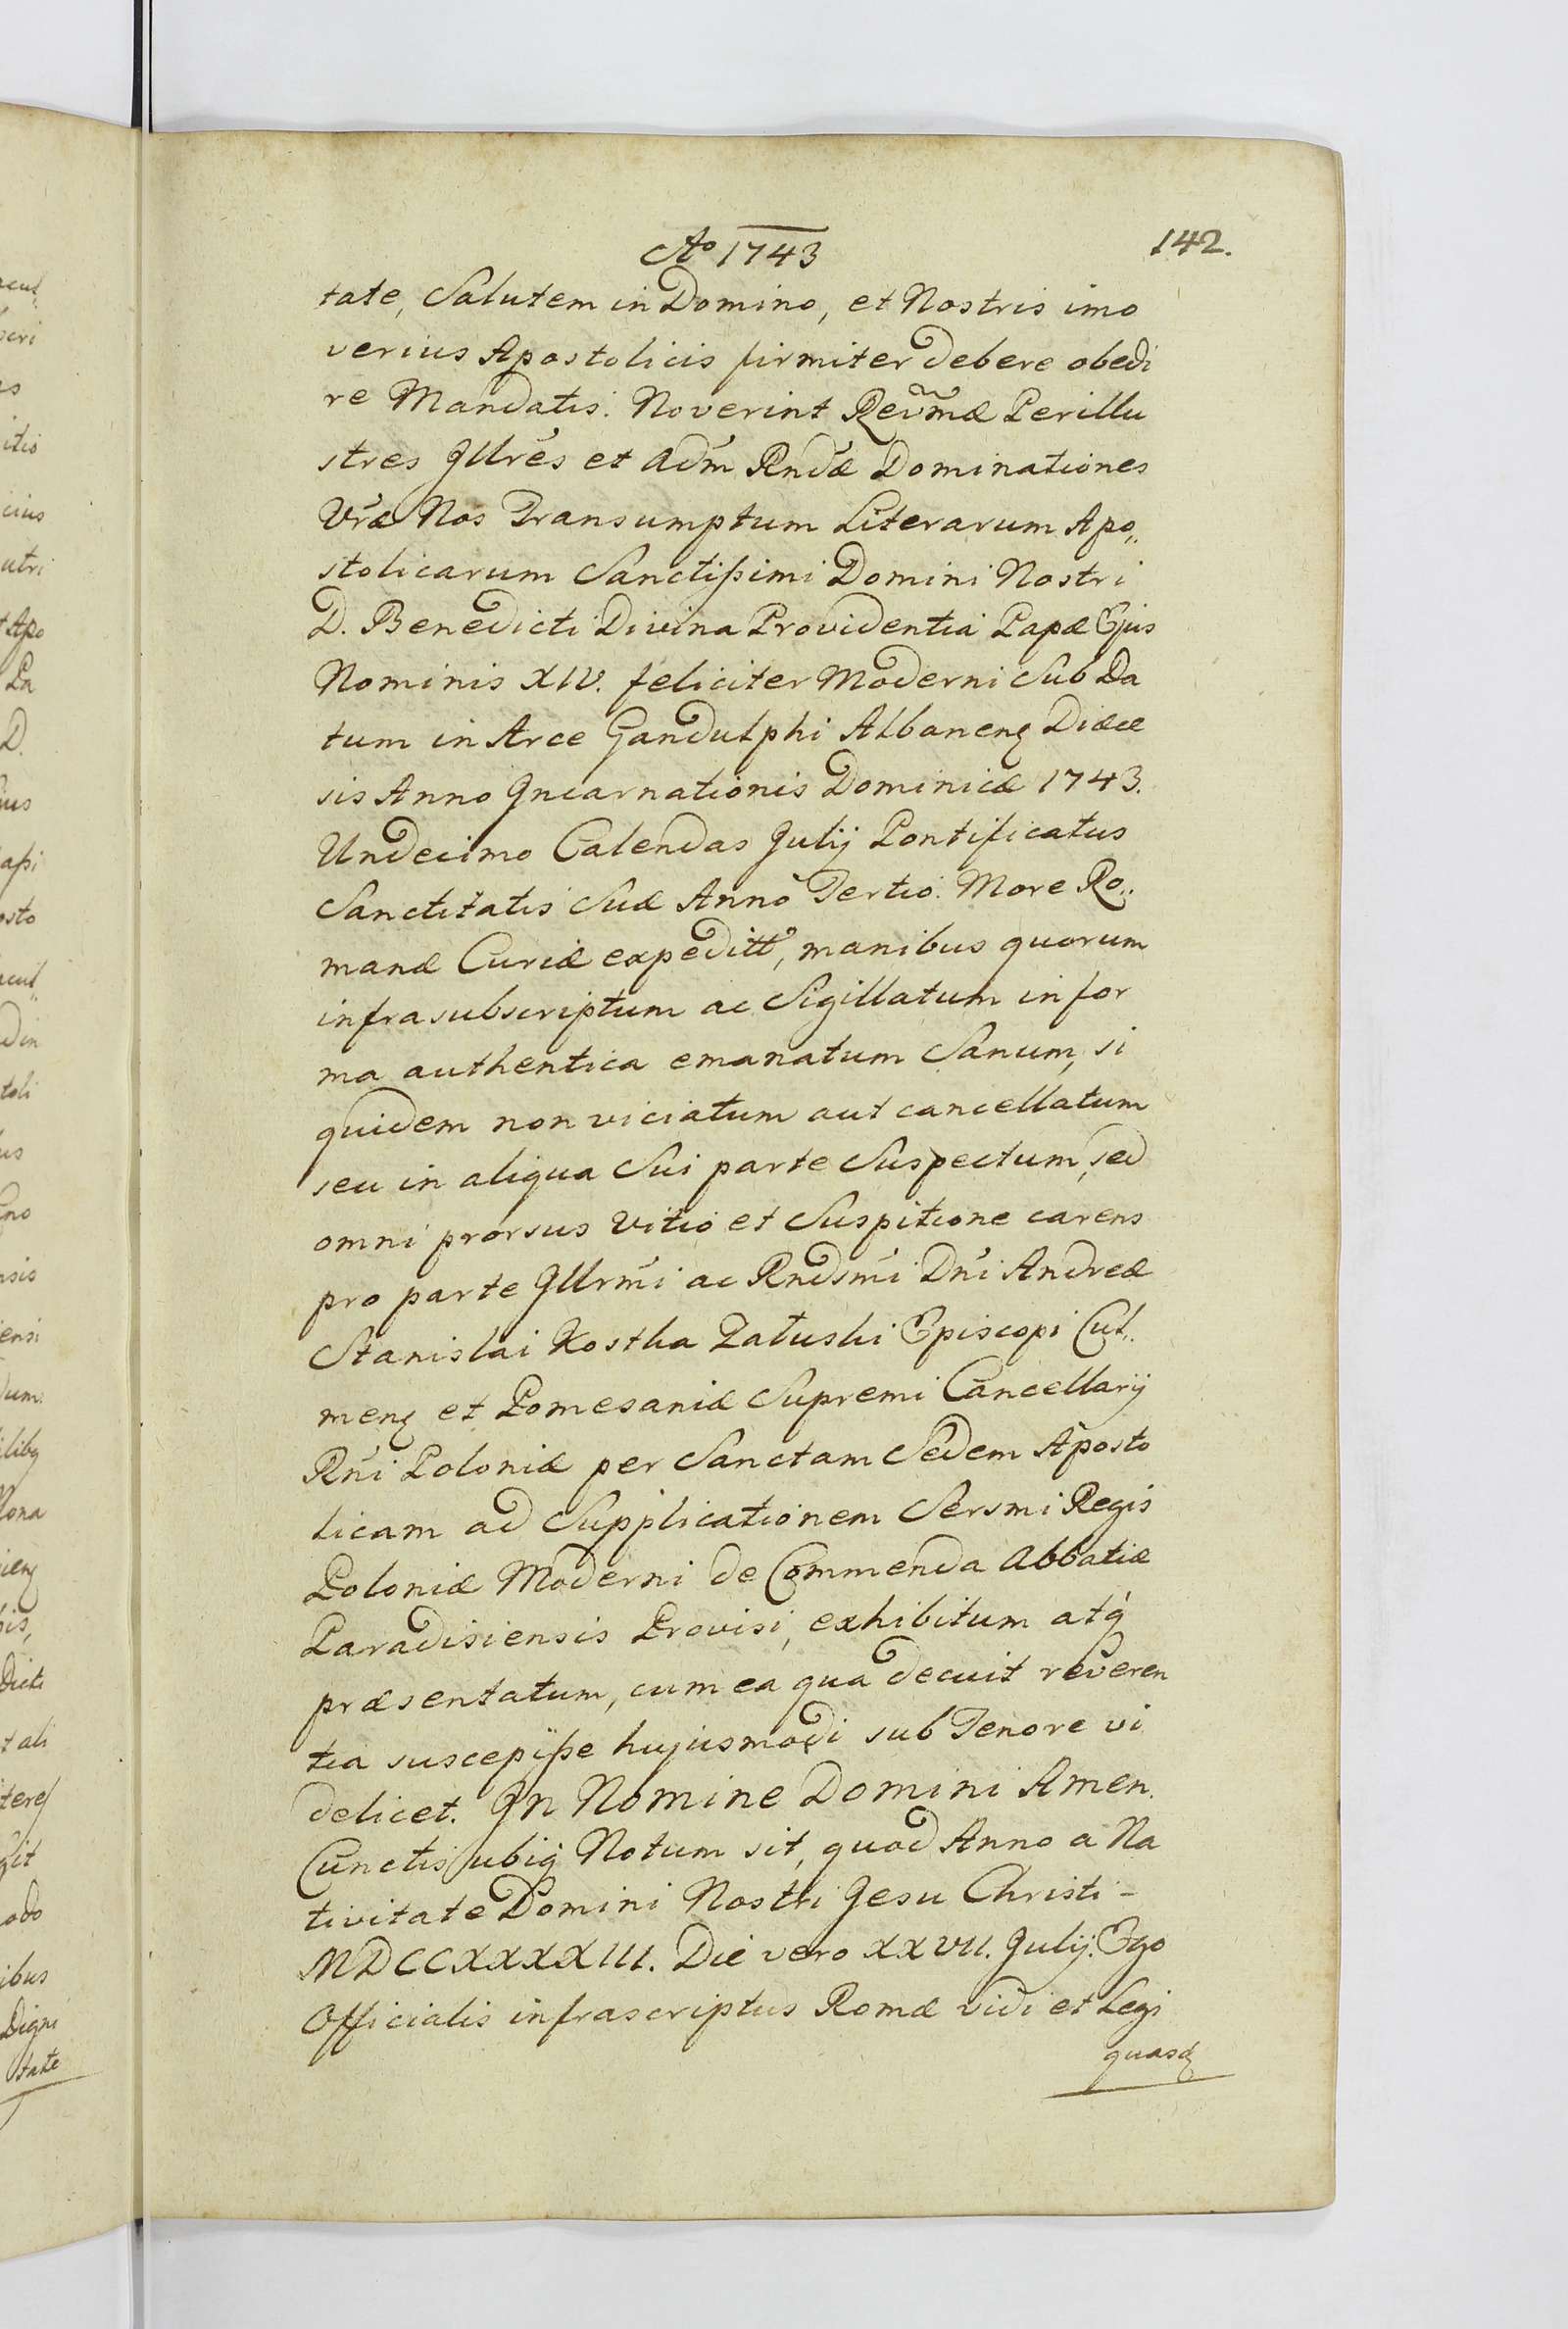 Ao 1743
142.
tate, Salutem in Domino, et Nostris imo
verius Apostolicis firmiter debere obedi
re Mandatis. Noverint Revm̃æ Perillu
stres Illrés et Adm̃ Rndæ Dominationes
Vræ Nos Transumptum Literarum Apo„
stolicarum Sanctißimi Domini Nostri
D. Benedicti Divina Providentia Papæ Ejus
Nominis XIV. feliciter Moderni Sub Da
tum in Arce Gandulphi Albaneng Diæce
sis Anno Incarnationis Dominicæ 1743.
Undecimo Calendas Julij Pontificatus
Sanctitatis Suæ Anno Tertio. More Ro„
manæ Curiæ expeditt, manibus quorum
infrasubscriptum ac Sigillatum in for
ma authentica emanatum Sanum, si
quidem non viciatum aut cancellatum
seu in aliqua Sui parte Suspectum, sed
omni prorsus Vitio et Suspitione carens
pro parte Illrmi ac Rndsmi Dni Andreæ
Stanislai Kostka Załuski Episcopi Cul„
meng et Pomesaniæ Supremi Cancellarij
Rni Poloniæ per Sanctam Sedem Aposto
licam ad Supplicationem Sersmi Regis
Poloniæ Moderni de Commenda Abbatiæ
Paradisiensis Provisi, exhibitum atq́
præsentatum, cum ea qua decuit reveren
tia suscepiße hujusmodi sub Tenore vi
delicet. In Nomine Domini Amen.
Cunctis ubiq Notum sit, quod Anno a Na
tivitate Domini Nostri Jesu Christi -
MDCCXXXXIII. Die vero XXVII. Julij. Ego
Officialis infrascriptus Romæ vidi et Legi
quasd